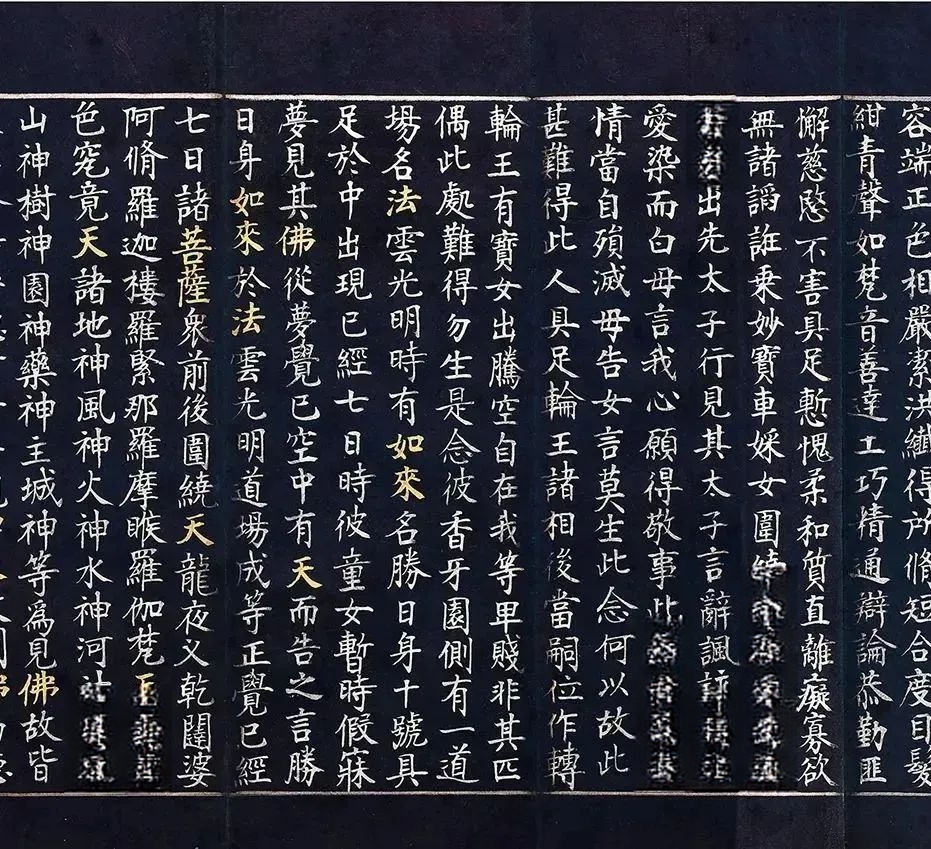 容端正色相嚴潔洪纖得所脩短合度目髮
紺青聲如梵音善達工巧精通辯論恭勤匪
懈慈愍不害具足慙愧柔和質直離癡寡欲
無諸謟誑乘妙寶車婇女圍
出先太子行見其太子言辭諷
愛染而白母言我心願得敬事此
情當自殞滅母告女言莫生此念何以故此
甚難得此人具足輪王諸相後當嗣位作轉
輪王有寶女出騰空自在我等卑賤非其匹
偶此處難得勿生是念彼香牙園側有一道
場名法雲光明時有如來名勝日身十號具
足於中出現已經七日時彼童女暫時假寐
夢見其佛從夢覺已空中有天而告之言勝
日身如來於法雲光明道場成等正覺已經
七日諸菩薩衆前後圍繞天龍夜叉乾闥婆
阿脩羅迦樓羅緊那羅摩睺羅伽梵
色究竟天諸地神風神火神水神河
山神樹神園神藥神主城神等爲見佛故皆